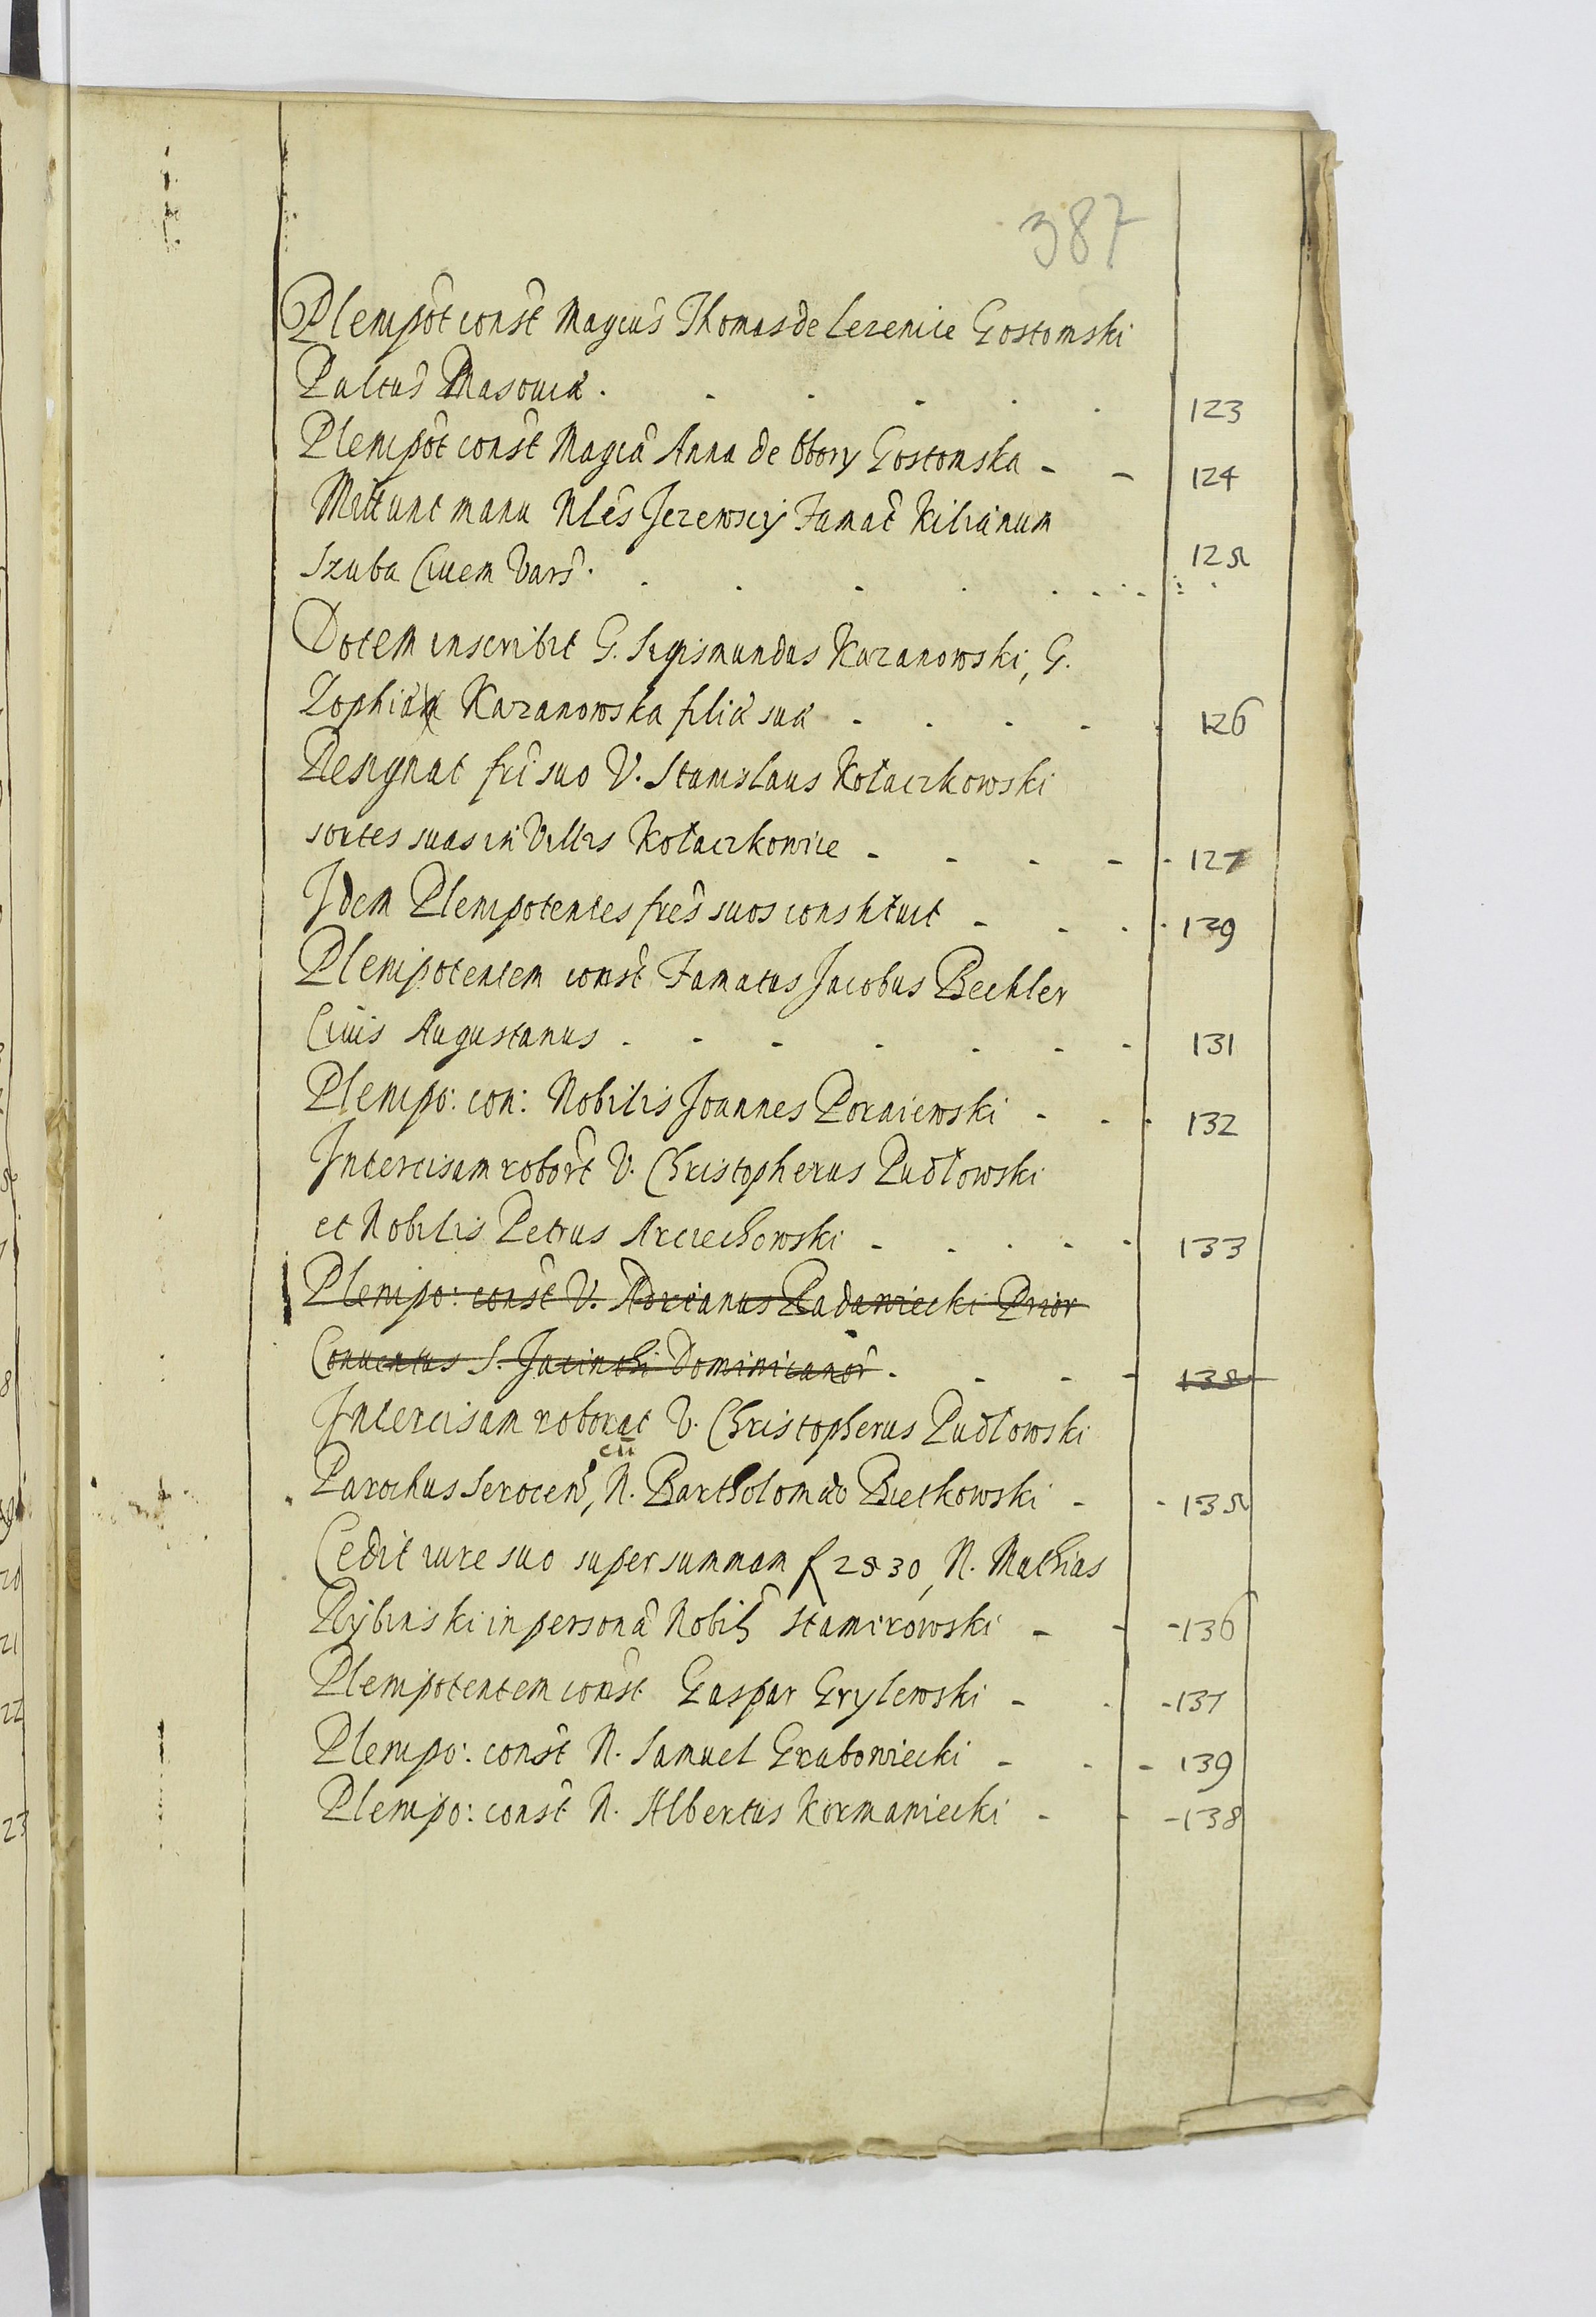 387
Plenipot const Magcus Thomas de Lezenice Gostomski
Paltus Masouiæ . . . . . . 123
Plenipot const Magca Anna de Obory Gostomska - - 124
Mittunt manu Nles Jezewscy Famat Kilianum
Szuba Ciuem Vars . . . . . . . . 125
Dotem inscribit G. Sigismundus Kazanowski, G.
Zophiæ Kazanowska filiæ suæ . . . . . 126
Resignat fri suo V. Stanislaus Kołaczkowski
sortes suas in Villis Kołaczkowice - - - - - 127
Idem Plenipotentes fres suos constituit - . . . 129
Plenipotentem const Famatus Jacobus Bechler
Ciuis Augustanus . - - - - - - 131
Plenipo: con: Nobilis Joannes Poraiewski - . . 132
Intercisam robort V. Christopherus Pudłowski
et Nobilis Petrus Arciechowski - . . . . 133
Plenipo: const V. Adrianus Radawiecki Prior
Conuentus S. Jacinthi Dominicanor . - - - 135
Intercisam roborat V. Christopherus Pudłowski
Parochus Serocen, cū N. Bartholomæo Bietkowski - - 135
Cedit iure suo super summam f 2830, N. Mathias
Rybinski in persona Nobil Stamirowski - - - 136
Plenipotentem const Gaspar Grylewski - . - 137
Plenipo: const N. Samuel Grabowiecki - - - 139
Plenipo: const N. Albertus Kormaniecki - - - 138